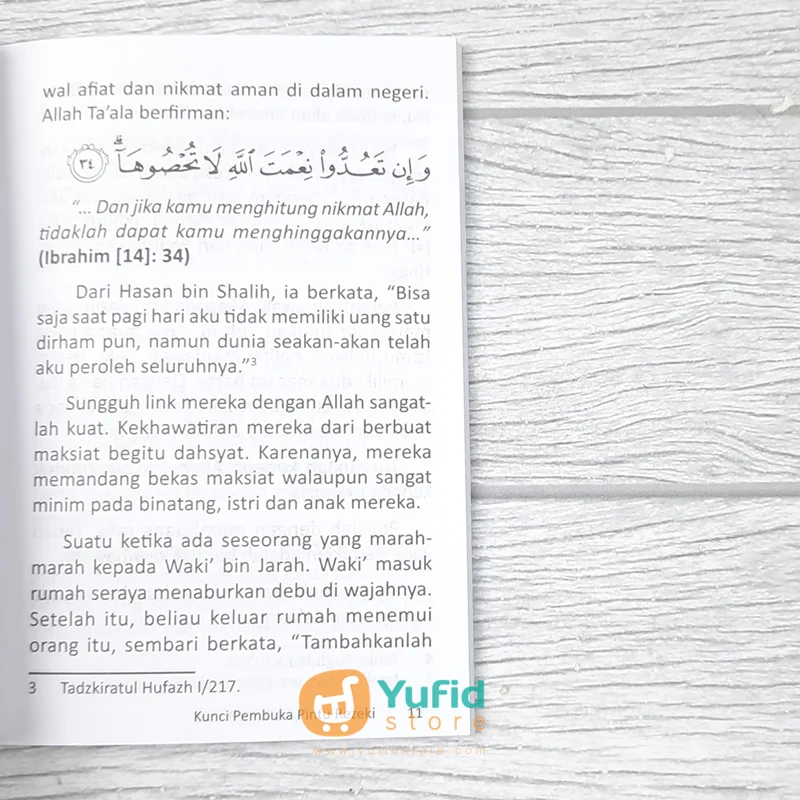 wal afiat dan nikmat aman di dalam negeri.
Allah Ta’ala berfirman:
وَإِن تَعُدُّواْ نِعْمَتَ ٱللَّهِ لَا تُحْصُوهَآۗ ٣٤
“... Dan jika kamu menghitung nikmat Allah,
tidaklah dapat kamu menghinggakannya...”
(Ibrahim [14]: 34)
Dari Hasan bin Shalih, ia berkata, “Bisa
saja saat pagi hari aku tidak memiliki uang satu
dirham pun, namun dunia seakan-akan telah
aku peroleh seluruhnya.”3
Sungguh link mereka dengan Allah sangat-
lah kuat. Kekhawatiran mereka dari berbuat
maksiat begitu dahsyat. Karenanya, mereka
memandang bekas maksiat walaupun sangat
minim pada binatang, istri dan anak mereka.
Suatu ketika ada seseorang yang marah-
marah kepada Waki’ bin Jarah. Waki’ masuk
rumah seraya menaburkan debu di wajahnya.
Setelah itu, beliau keluar rumah menemui
orang itu, sembari berkata, “Tambahkanlah
3 Tadzkiratul Hufazh I/217.
Kunci Pembuka Pintu Rezeki 11
Yufid
store
www.yufidstore.com